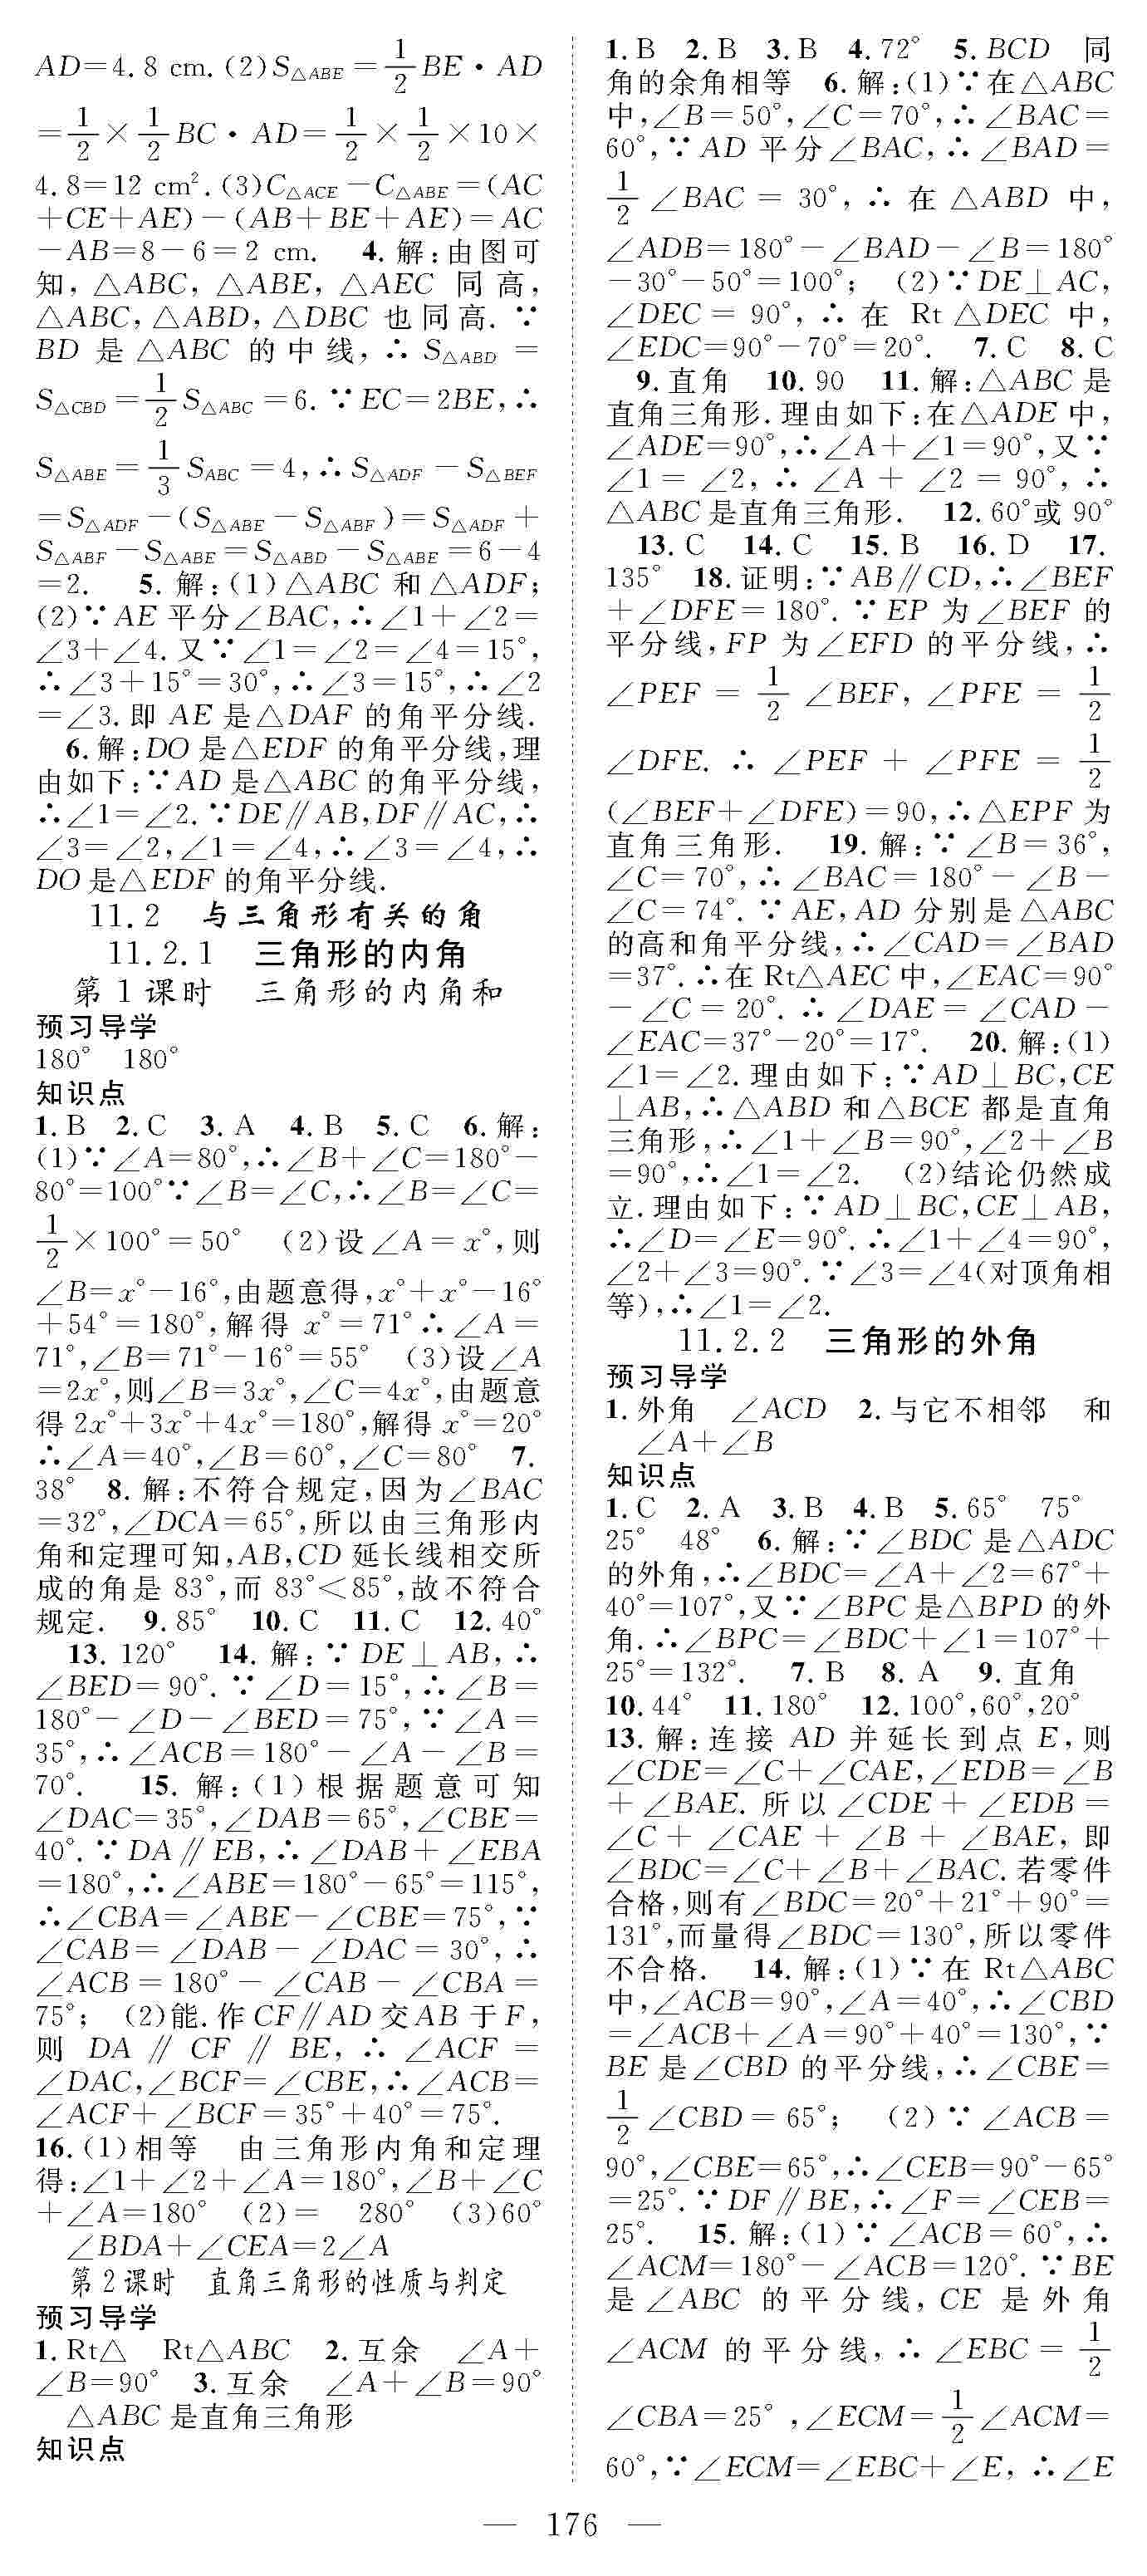 AD=4.8 cm.(2)S△ABE=1/2BE·AD
=1/2×1/2BC·AD=1/2×1/2×10×
4.8=12 cm².(3)C△ACE−C△ABE=(AC
+CE+AE)−(AB+BE+AE)=AC
−AB=8−6=2 cm. 4.解:由图可
知,△ABC,△ABE,△AEC 同高,
△ABC,△ABD,△DBC 也同高.∵
BD 是△ABC 的中线,∴S△ABD=
S△CBD=1/2S△ABC=6.∵EC=2BE,∴
S△ABE=1/3SABC=4,∴S△ADF−S△BEF
=S△ADF−(S△ABE−S△ABF)=S△ADF+
S△ABF−S△ABE=S△ABD−S△ABE=6−4
=2. 5.解:(1)△ABC 和△ADF;
(2)∵AE 平分∠BAC,∴∠1+∠2=
∠3+∠4.又∵∠1=∠2=∠4=15°,
∴∠3+15°=30°,∴∠3=15°,∴∠2
=∠3.即 AE 是△DAF 的角平分线.
6.解:DO 是△EDF 的角平分线,理
由如下:∵AD 是△ABC 的角平分线,
∴∠1=∠2.∵DE∥AB,DF∥AC,∴
∠3=∠2,∠1=∠4,∴∠3=∠4,∴
DO 是△EDF 的角平分线.
11.2 与三角形有关的角
11.2.1 三角形的内角
第1课时 三角形的内角和
预习导学
180° 180°
知识点
1.B 2.C 3.A 4.B 5.C 6.解:
(1)∵∠A=80°,∴∠B+∠C=180°−
80°=100°∵∠B=∠C,∴∠B=∠C=
1/2×100°=50° (2)设∠A=x°,则
∠B=x°−16°,由题意得,x°+x°−16°
+54°=180°,解得 x°=71°∴∠A=
71°,∠B=71°−16°=55° (3)设∠A
=2x°,则∠B=3x°,∠C=4x°,由题意
得 2x°+3x°+4x°=180°,解得 x°=20°
∴∠A=40°,∠B=60°,∠C=80° 7.
38° 8.解:不符合规定,因为∠BAC
=32°,∠DCA=65°,所以由三角形内
角和定理可知,AB,CD 延长线相交所
成的角是 83°,而 83°<85°,故不符合
规定. 9.85° 10.C 11.C 12.40°
13.120° 14.解:∵DE⊥AB,∴
∠BED=90°.∵∠D=15°,∴∠B=
180°−∠D−∠BED=75°,∵∠A=
35°,∴∠ACB=180°−∠A−∠B=
70°. 15.解:(1)根据题意可知
∠DAC=35°,∠DAB=65°,∠CBE=
40°.∵DA∥EB,∴∠DAB+∠EBA
=180°,∴∠ABE=180°−65°=115°,
∴∠CBA=∠ABE−∠CBE=75°,∵
∠CAB=∠DAB−∠DAC=30°,∴
∠ACB=180°−∠CAB−∠CBA=
75°; (2)能.作 CF∥AD 交 AB 于 F,
则 DA∥CF∥BE,∴∠ACF=
∠DAC,∠BCF=∠CBE,∴∠ACB=
∠ACF+∠BCF=35°+40°=75°.
16.(1)相等 由三角形内角和定理
得:∠1+∠2+∠A=180°,∠B+∠C
+∠A=180° (2)= 280° (3)60°
∠BDA+∠CEA=2∠A
第2课时 直角三角形的性质与判定
预习导学
1.Rt△ Rt△ABC 2.互余 ∠A+
∠B=90° 3.互余 ∠A+∠B=90°
△ABC 是直角三角形
知识点
1.B 2.B 3.B 4.72° 5.BCD 同
角的余角相等 6.解:(1)∵在△ABC
中,∠B=50°,∠C=70°,∴∠BAC=
60°,∵AD 平分∠BAC,∴∠BAD=
1/2∠BAC=30°,∴在△ABD 中,
∠ADB=180°−∠BAD−∠B=180°
−30°−50°=100°; (2)∵DE⊥AC,
∠DEC=90°,∴在 Rt△DEC 中,
∠EDC=90°−70°=20°. 7.C 8.C
9.直角 10.90 11.解:△ABC 是
直角三角形.理由如下:在△ADE 中,
∠ADE=90°,∴∠A+∠1=90°,又∵
∠1=∠2,∴∠A+∠2=90°,∴
△ABC 是直角三角形. 12.60°或 90°
13.C 14.C 15.B 16.D 17.
135° 18.证明:∵AB∥CD,∴∠BEF
+∠DFE=180°.∵EP 为∠BEF 的
平分线,FP 为∠EFD 的平分线,∴
∠PEF=1/2∠BEF,∠PFE=1/2
∠DFE.∴∠PEF+∠PFE=1/2
(∠BEF+∠DFE)=90,∴△EPF 为
直角三角形. 19.解:∵∠B=36°,
∠C=70°,∴∠BAC=180°−∠B−
∠C=74°.∵AE,AD 分别是△ABC
的高和角平分线,∴∠CAD=∠BAD
=37°.∴在 Rt△AEC 中,∠EAC=90°
−∠C=20°.∴∠DAE=∠CAD−
∠EAC=37°−20°=17°. 20.解:(1)
∠1=∠2.理由如下:∵AD⊥BC,CE
⊥AB,∴△ABD 和△BCE 都是直角
三角形,∴∠1+∠B=90°,∠2+∠B
=90°,∴∠1=∠2. (2)结论仍然成
立.理由如下:∵AD⊥BC,CE⊥AB,
∴∠D=∠E=90°.∴∠1+∠4=90°,
∠2+∠3=90°.∵∠3=∠4(对顶角相
等),∴∠1=∠2.
11.2.2 三角形的外角
预习导学
1.外角 ∠ACD 2.与它不相邻 和
∠A+∠B
知识点
1.C 2.A 3.B 4.B 5.65° 75°
25° 48° 6.解:∵∠BDC 是△ADC
的外角,∴∠BDC=∠A+∠2=67°+
40°=107°,又∵∠BPC 是△BPD 的外
角.∴∠BPC=∠BDC+∠1=107°+
25°=132°. 7.B 8.A 9.直角
10.44° 11.180° 12.100°,60°,20°
13.解:连接 AD 并延长到点 E,则
∠CDE=∠C+∠CAE,∠EDB=∠B
+∠BAE.所以∠CDE+∠EDB=
∠C+∠CAE+∠B+∠BAE,即
∠BDC=∠C+∠B+∠BAC.若零件
合格,则有∠BDC=20°+21°+90°=
131°,而量得∠BDC=130°,所以零件
不合格. 14.解:(1)∵在 Rt△ABC
中,∠ACB=90°,∠A=40°,∴∠CBD
=∠ACB+∠A=90°+40°=130°,∵
BE 是∠CBD 的平分线,∴∠CBE=
1/2∠CBD=65°; (2)∵∠ACB=
90°,∠CBE=65°,∴∠CEB=90°−65°
=25°.∵DF∥BE,∴∠F=∠CEB=
25°. 15.解:(1)∵∠ACB=60°,∴
∠ACM=180°−∠ACB=120°.∵BE
是∠ABC 的平分线,CE 是外角
∠ACM 的平分线,∴∠EBC=1/2
∠CBA=25°,∠ECM=1/2∠ACM=
60°,∵∠ECM=∠EBC+∠E,∴∠E
— 176 —